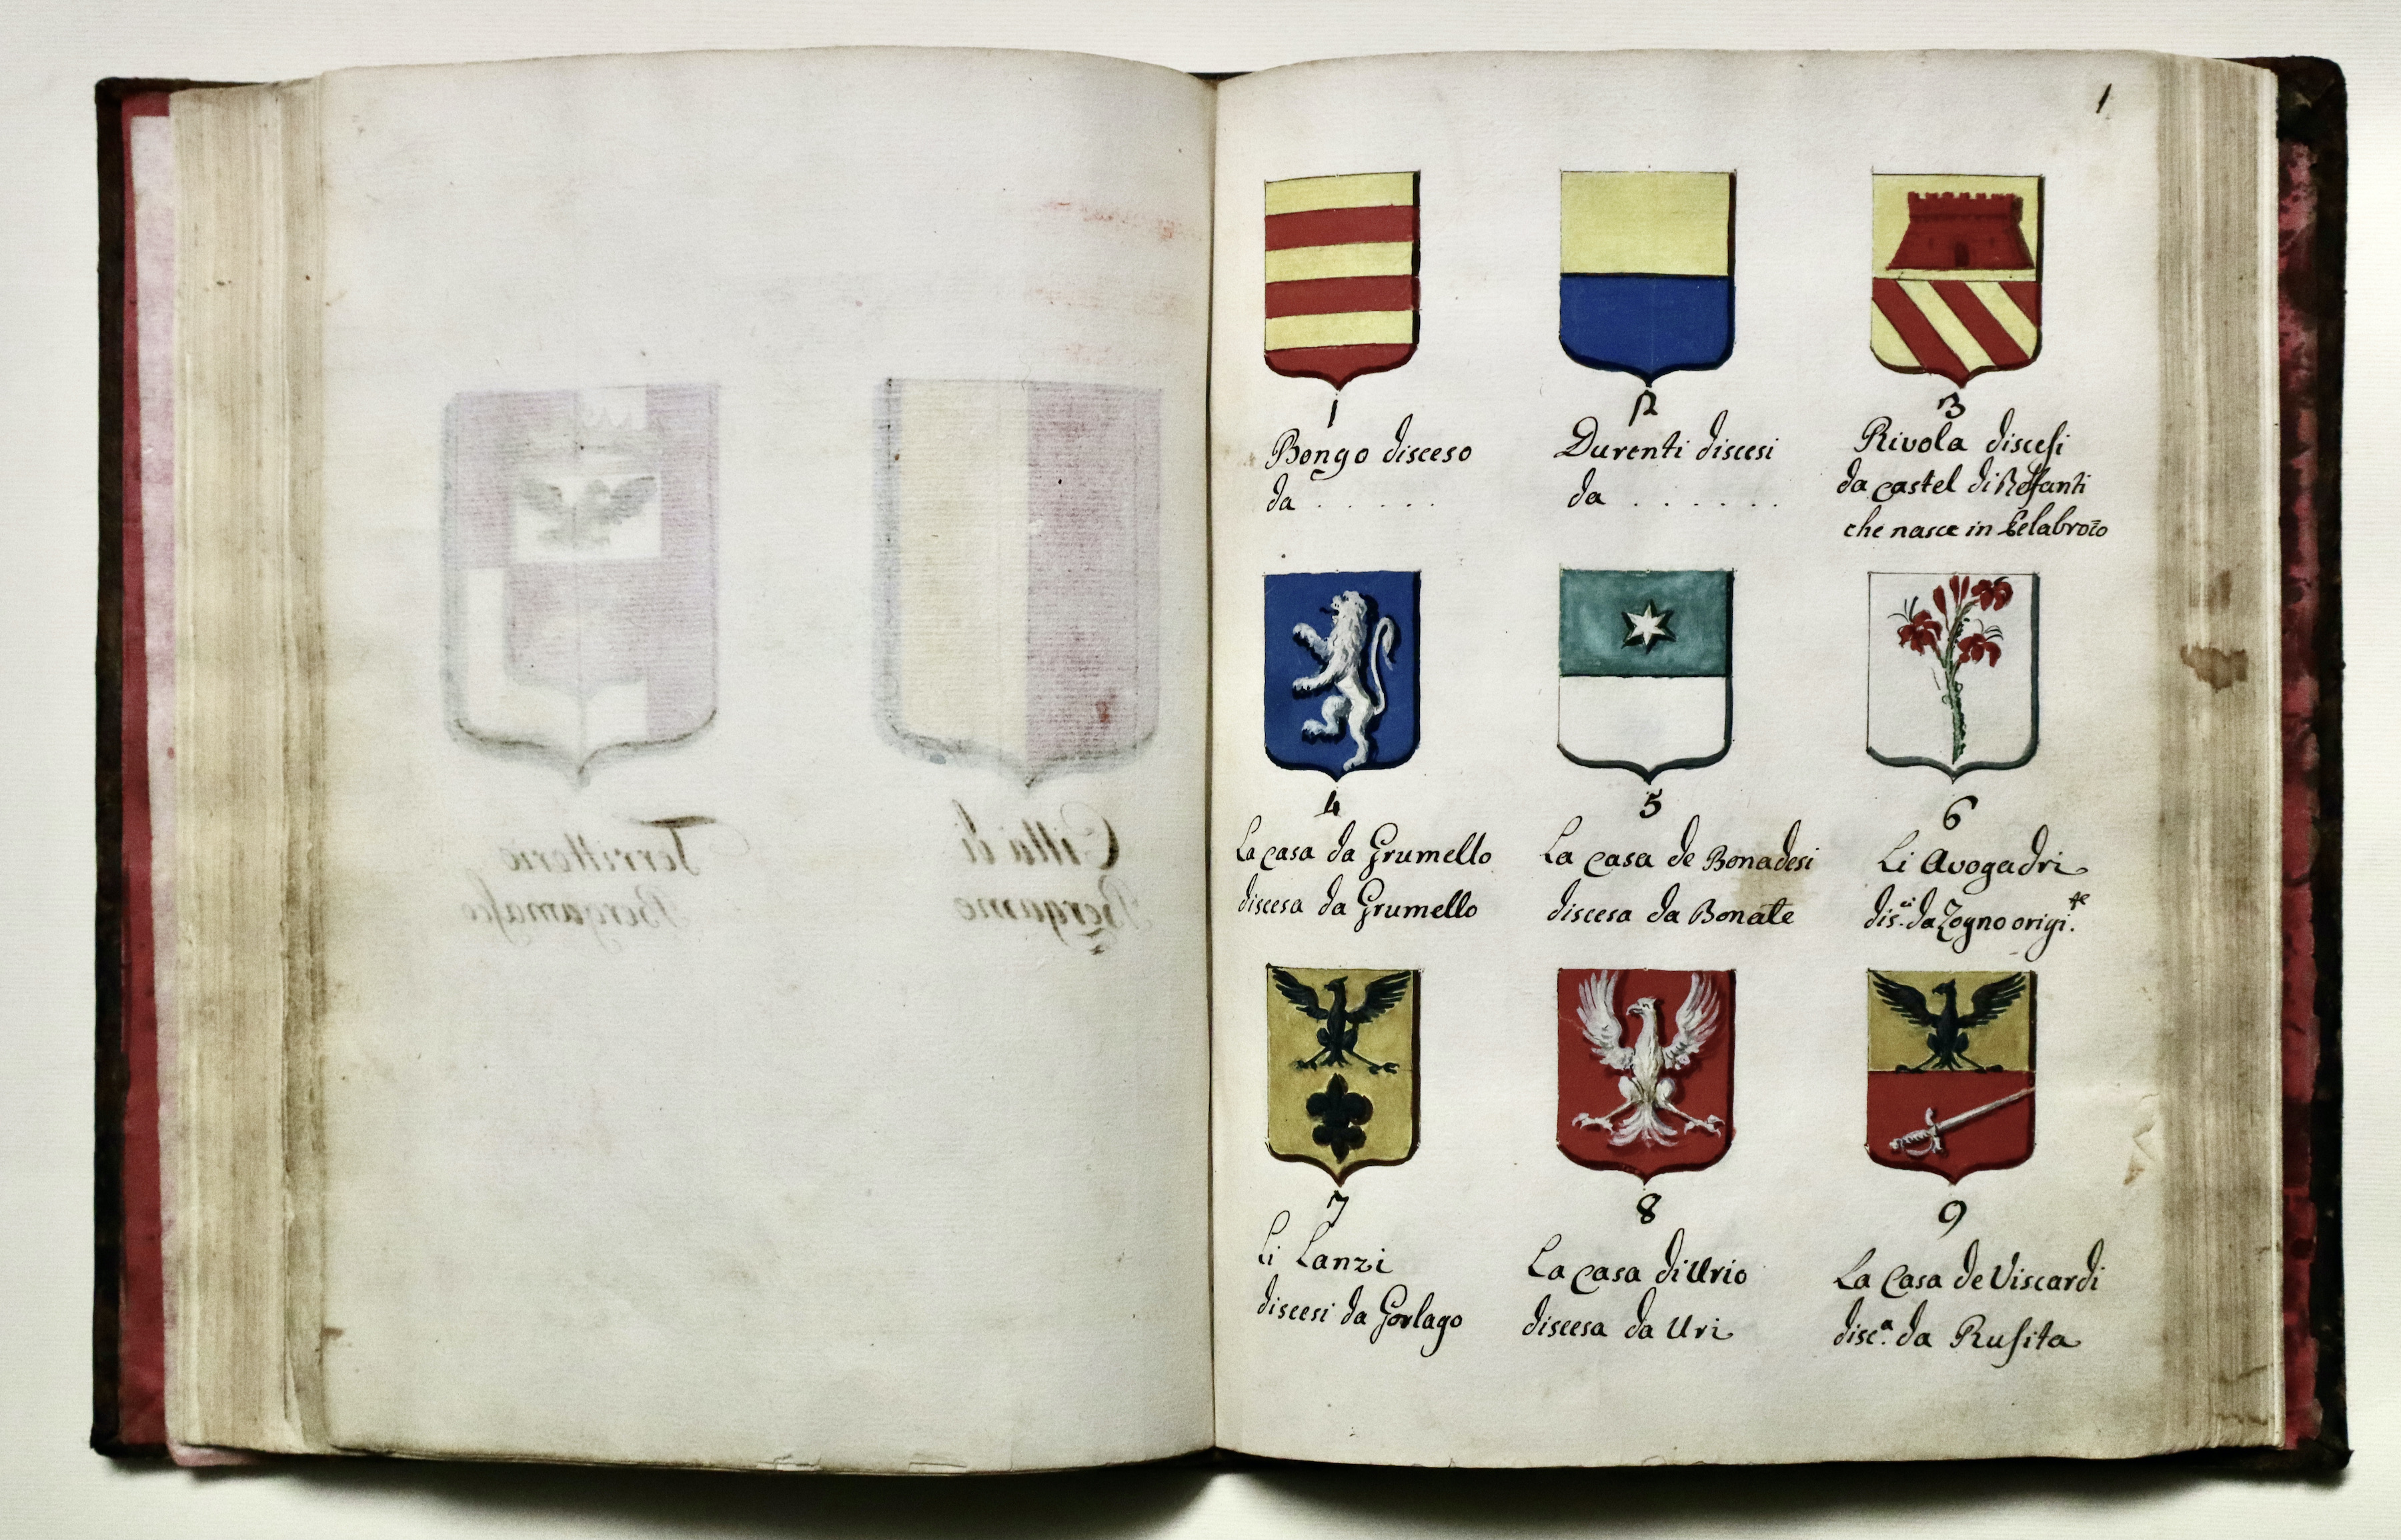 Città di
Bergamo
Territorio
Bergamasco
1
1
Bongo disceso
da . . . . . .
2
Durenti discesi
da . . . . . .
3
Rivola discesi
da castel di
che nasce in
4
La casa da Grumello
discesa da Grumello
5
La casa de Bonadesi
discesa da Bonate
6
Li Avogadri
dis.ci da Zogno origi.
7
Li Lanzi
discesi da Gorlago
8
La casa di Urio
discesa da Uri
9
La Casa de Viscardi
disc.a da Rusita